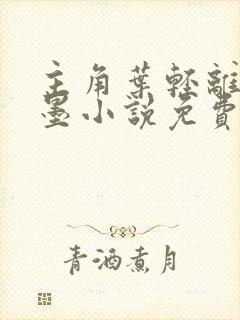 主角葉輕離
墨小說免費
青酒煮月